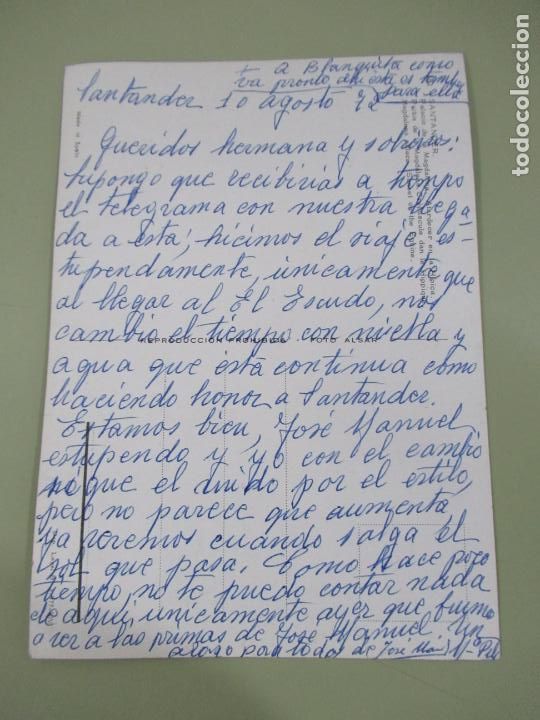 A Blanquita como
va pronto
Santander 10 agosto 72
para ella
Queridos hermana y sobrinos:
Supongo que recibirías a tiempo
el telegrama con nuestra llega
da a esta; hicimos el viaje es-
tupendamente, únicamente que
al llegar al El Escudo, nos
cambió el tiempo con niebla y
agua que está continua como
haciendo honor a Santander.
Estamos bien, José Manuel
estupendo y yo con el cambio
que el oído por el estilo,
pero no parece que aumenta,
ya veremos cuando salga el
sol que pasa. Como hace poco
tiempo, no te puedo contar nada
de aquí, únicamente ayer que fuimo
a ver a las primas de José Manuel. Un
para todos de José Man
REPRODUCCION PROHIBIDA FOTO ALSAR
SANTANDER
Made in Spain
todocoleccion